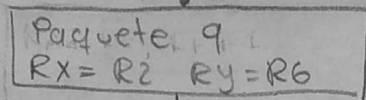 Paquete 9
Rx = R2 Ry = R6